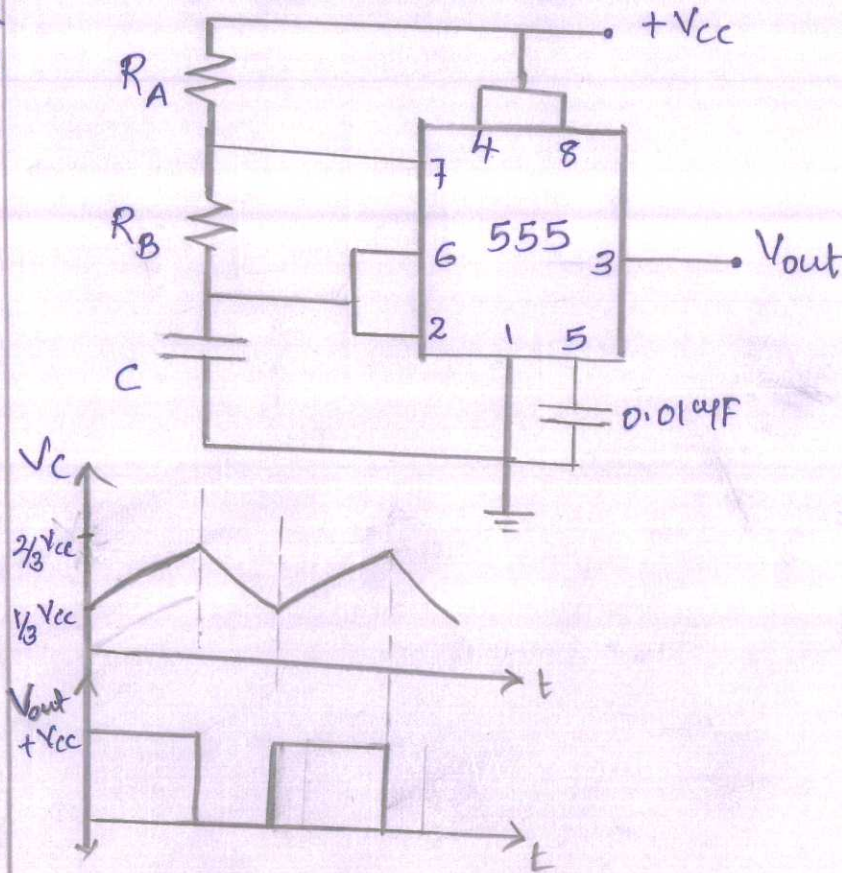 + Vcc
RA
4 8
7
RB
6 555 3 Vout
2 1 5
C
0.01μF
Vc
2/3 Vcc
1/3 Vcc
t
Vout
+Vcc
t